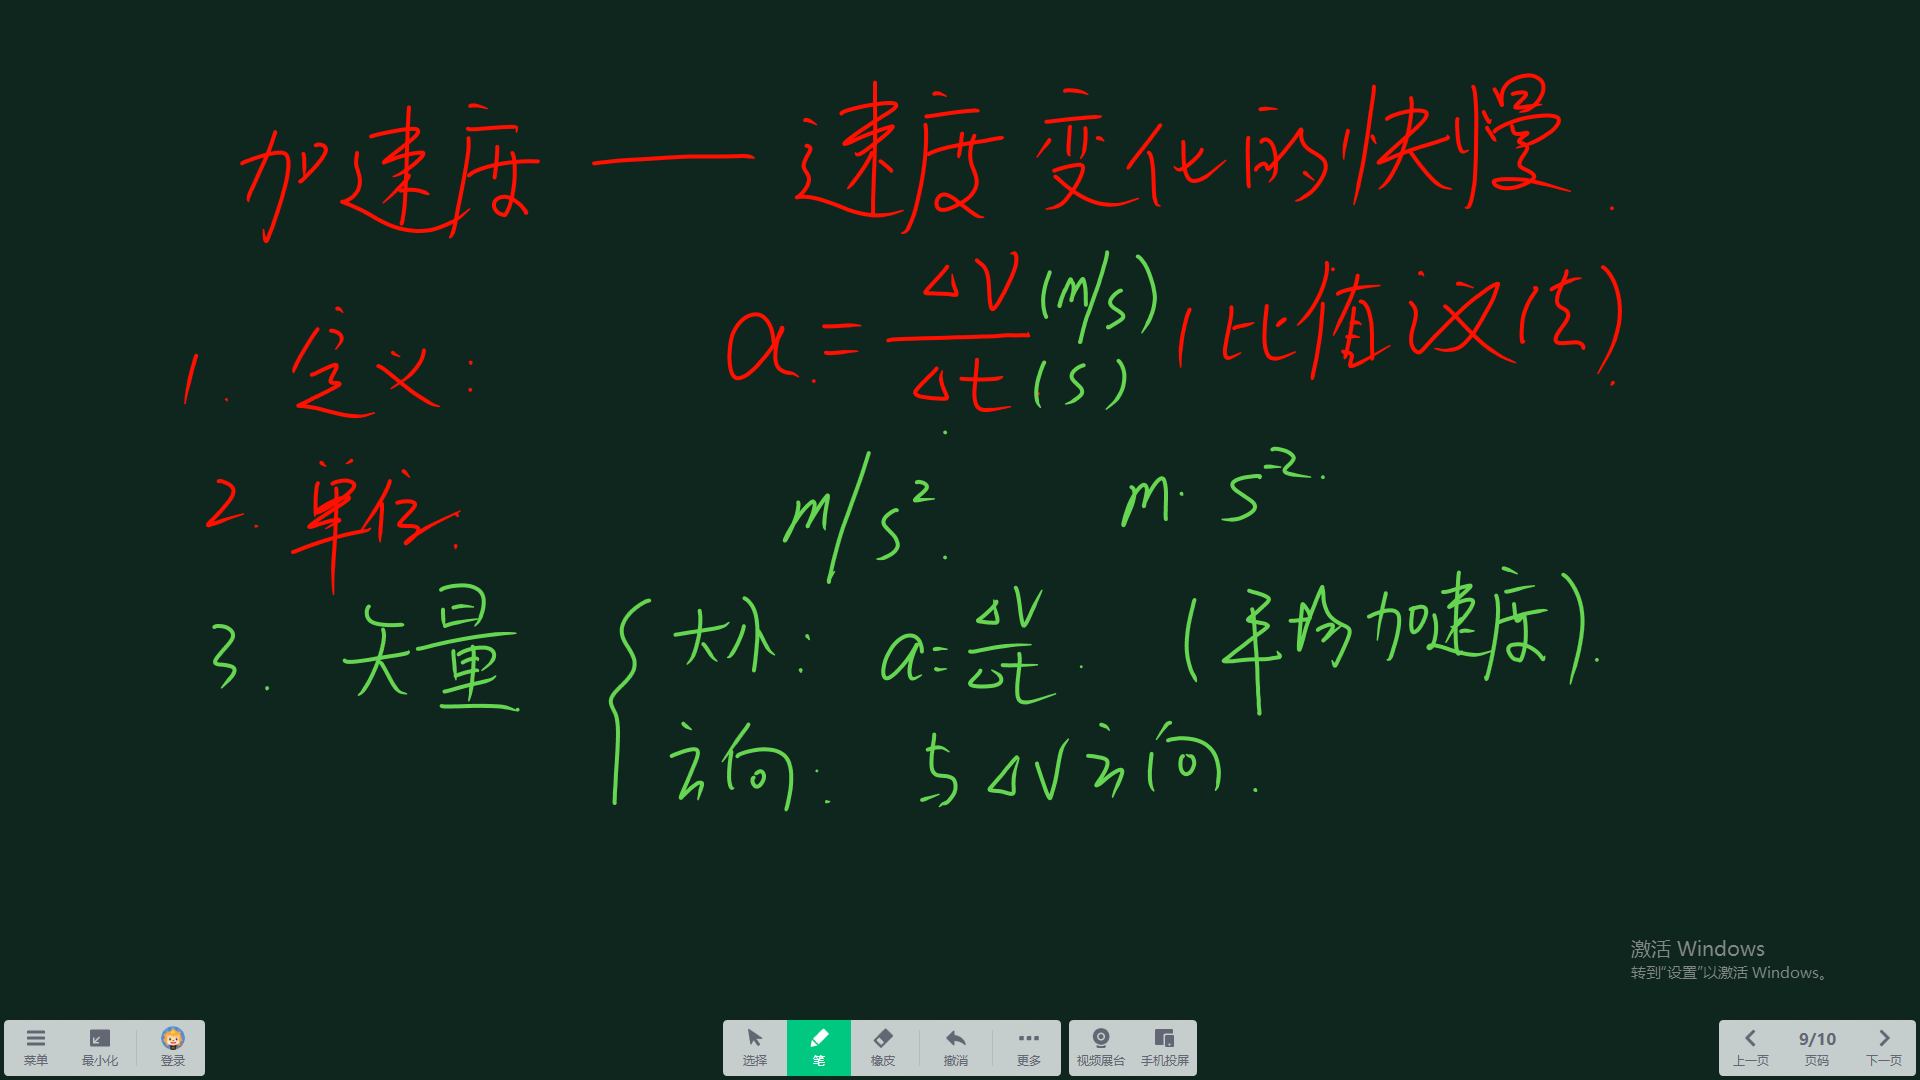 加速度 —— 速度变化的快慢.
1. 定义: a = Δv(m/s) / Δt(s) (比值定义法)
2. 单位. m/s². m·s⁻².
3. 矢量 { 大小: a = Δv/Δt. (平均加速度).
方向: 与Δv方向.
激活 Windows
转到“设置”以激活 Windows。
菜单 最小化 登录 选择 笔 橡皮 撤消 更多 视频展台 手机投屏 上一页 9/10 页码 下一页